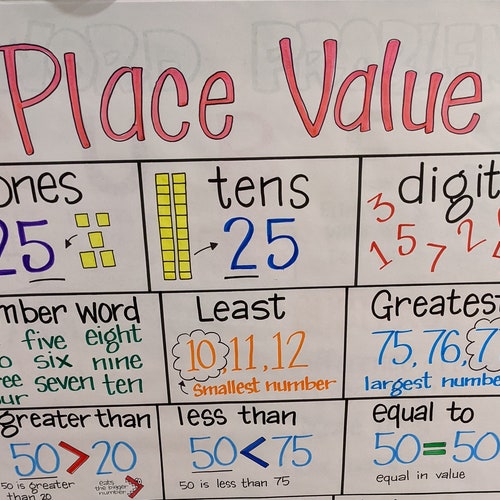 Place Value
ones
25
tens
25
digit
3
1 5 7 2
mber word
five eight
six nine
ree seven ten
our
Least
10, 11, 12
smallest number
Greates
75, 76, 7
largest numbe
greater than
50 > 20
50 is greater
than 20
eats
the bigger
number
less than
50 < 75
50 is less than 75
equal to
50 = 50
equal in value